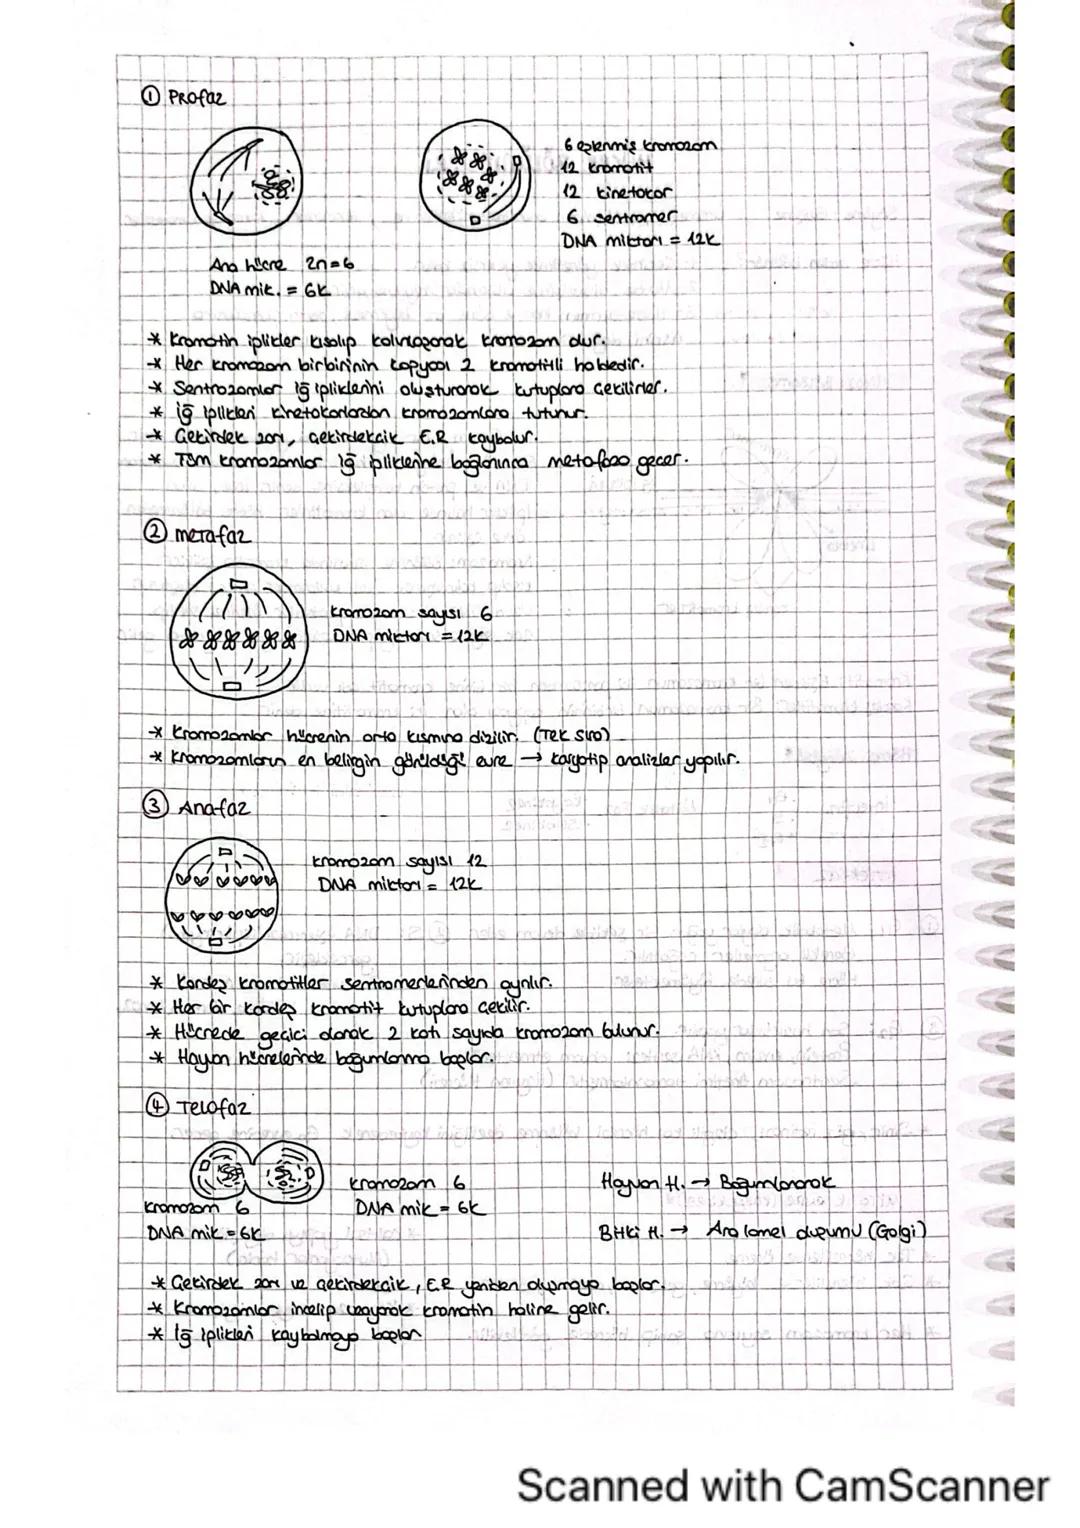 ① Profaz
6 eşlenmiş kromozom
12 kromotit
12 kinetokor
6 sentromer
DNA miktarı = 12K
Ana hücre 2n=6
DNA mik. = 6K
* Kromotin iplikler kısalıp kalınlaşarak kromozom olur.
* Her kromozom birbirinin kopyası 2 kromotitli haldedir.
* Sentrozomlar iğ ipliklerini oluşturarak kutuplara çekilirler.
* iğ iplikleri kinetokorlardan kromozomlara tutunur.
* Çekirdek zarı, çekirdekçik E.R kaybolur.
* Tüm kromozomlar iğ ipliklerine bağlanınca metafaza geçer.
② metafaz
kromozom sayısı 6
DNA miktarı = 12K
* Kromozomlar hücrenin orta kısmına dizilir. (Tek sıra)
* Kromozomların en belirgin görüldüğü evre → karyotip analizler yapılır.
③ Anafaz
kromozom sayısı 12
DNA miktarı = 12K
* Kardeş kromotitler sentromerlerinden ayrılır.
* Her bir kardeş kromotit kutuplara çekilir.
* Hücrede geçici olarak 2 katı sayıda kromozom bulunur.
* Hayvan hücrelerinde boğumlanma başlar.
④ Telofaz
kromozom 6
DNA mik = 6K
kromozom 6
DNA mik = 6K
Hayvan H. → Boğumlanarak
Bitki H. → Ara lamel oluşumu (Golgi)
* Çekirdek zarı ve çekirdekçik, E.R yeniden oluşmaya başlar.
* Kromozomlar incelip uzayarak kromatin haline gelir.
* İğ iplikleri kaybolmaya başlar
Scanned with CamScanner